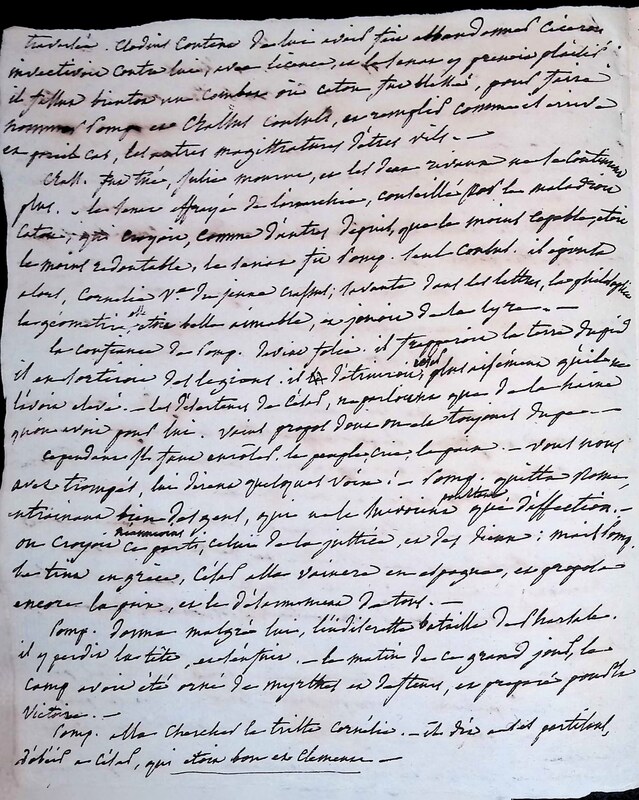 travailla. Clodius Content de lui avoir fait abbandonner Ciceron
invectivoit contre lui, avec licence, et le Senat y prenoit plaisir :
il fallut bientot un Combat où Caton fut blessé, pour faire
nommer Pomp. et Crassus Consuls, et remplir comme il arrive
en pareil cas, les autres magistratures d'êtres vils. —
Crass. fut tué, Julie mourut, et les deux rivaux ne se continrent
plus. le Senat effrayé de l'anarchie, conseillé par le maladroit
Caton, qui croyoit, comme d'autres depuis, que le moins capable étoit
le moins redoutable, le Senat fit Pomp. Seul Consul. il épousa
alors, Cornelie V.ve du jeune Crassus ; Savante dans les lettres, la philosophie
la géométrie, elle étoit belle aimable, et jouoit de la lyre. —
la confiance de Pomp. devint folie. il frapperoit la terre du pied
il en sortiroit des légions. il détruiroit César plus aisément qu'il ne
l'avoit élevé. — les déserteurs de César, ne parloient que de la haine
qu'on avoit pour lui. Vains propos dont on est toujours dupe —
cependant il faut enroler, le peuple crie la paix. — Vous nous
avez trompés, lui dirent quelques voix ! — Pomp. quitta Rome,
entrainant bien des gens, qui ne le suivirent pourtant que d'affection. —
on croyoit néanmoins ce parti, celui de la justice, et des dieux : mais Pomp.
se tint en grèce, César alla vaincre en espagne, et proposa
encore la paix, et le désarmement de tous. —
Pomp. donna malgré lui, l'indiscrette bataille de Pharsale.
il y perdit la tête, et s'enfuit. — le matin de ce grand jour, le
Camp avoit été orné de myrthes et de fleurs, et préparé pour la
Victoire. —
Pomp. alla chercher la triste Cornélie. — il dit à ses partisans,
d'obéir à César, qui étoit bon et Clement —